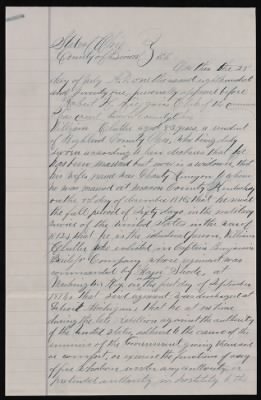 State of Ohio
County of Brown } SS.
On this the 25
day of July A.D. one thousand eight hundred
and seventy one, personally appeared before
Robert H. Higgins Clerk of the common
Pleas court
William Shuller aged 83 years, a resident
of Highland County Ohio, who being duly
sworn according to law declares that he
has been married but now is a widower, that
his wife's name was Charity Runyon to whom
he was married at Mason County Kentucky
on the day of december 1816 that he served
the full period of Sixty days in the military
service of the United States in the war of
1812 that he is the identical person William
Shuller who enlisted in Captain Benjamin
Company whose regiment was
commanded by at
Washington Ky. on the first day of September
1813. that said regiment was discharged at
Detroit Michigan that he at no time
during the late rebellion against the authority
of the United States, adhered to the cause of the
enemies of the Government giving them aid
or comfort, or exercised the functions of any
office whatever under any authority, or
pretended authority, in hostility to the